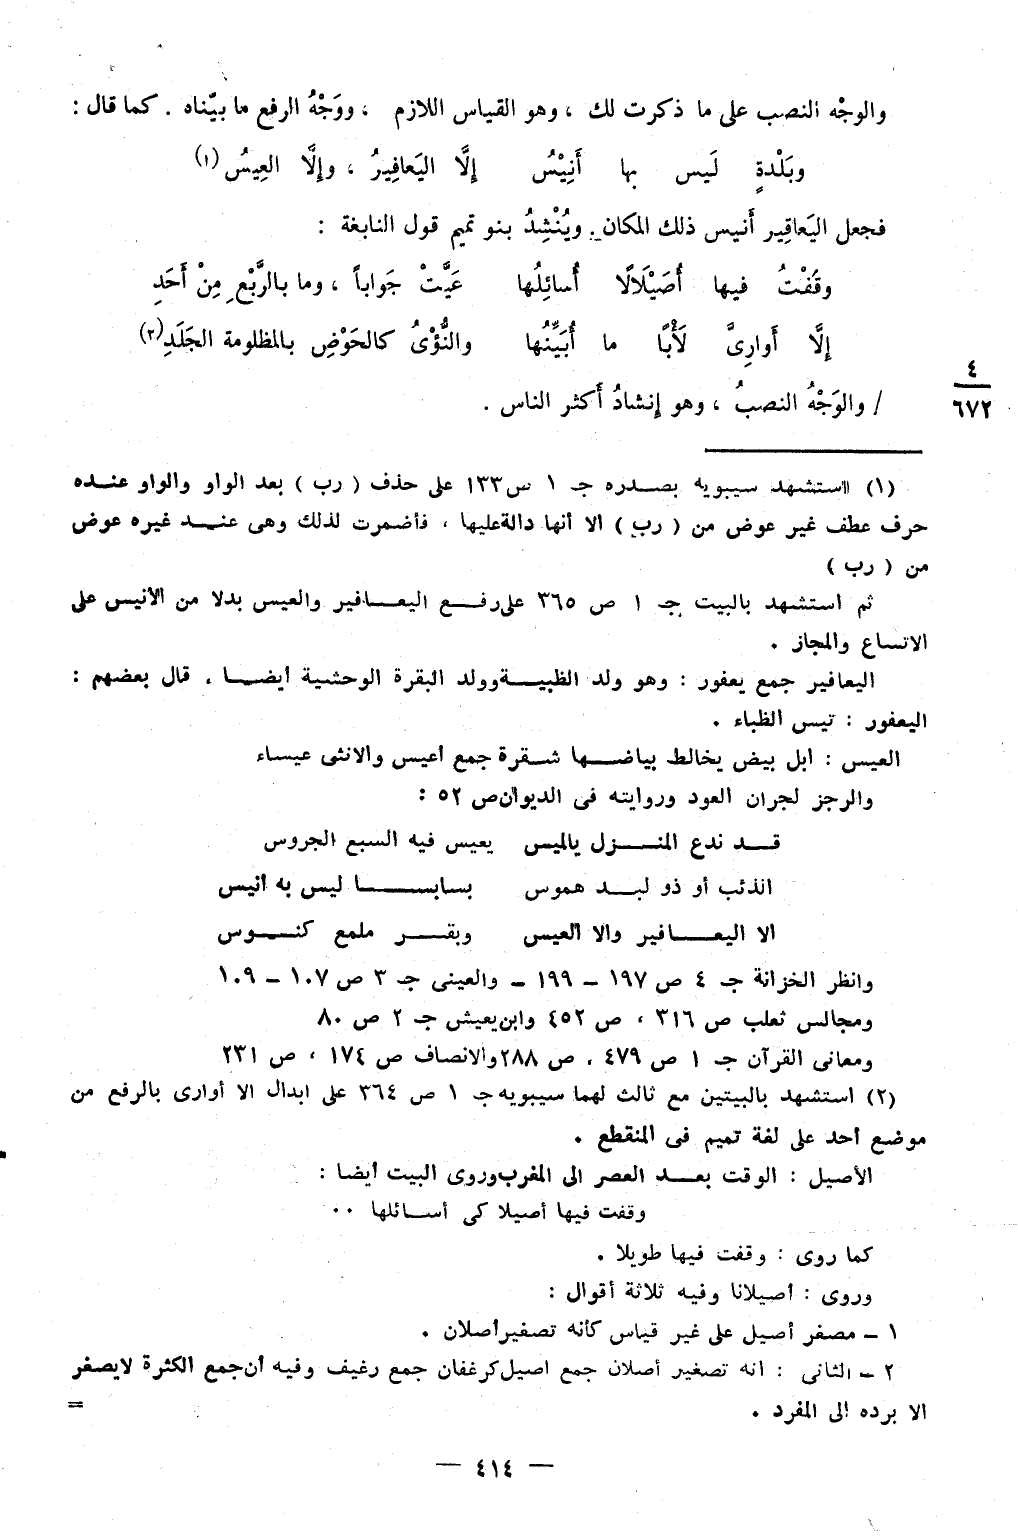 والوجْه النصب على ما ذكرت لك ، وهو القياس اللازم ، ووَجْهُ الرفع ما بيّناه . كما قال :
وبَلْدةٍ لَيس بها أَنِيْسُ إلَّا اليَعافِيرُ ، وإلَّا العِيسُ (١)
فجعل اليَعاقِير أَنيس ذلك المكان . ويُنْشِدُ بنو تميم قول النابغة :
وقَفْتُ فيها أُصَيْلَالًا أُسائِلُها عَيَّتْ جَواباً ، وما بالرَّبْعِ مِنْ أَحَدِ
إلَّا أَوارِىَّ لَأْيًا ما أُبَيِّنُها والنُّؤْىُ كالحَوْضِ بالمظلومة الجَلَدِ (٢)
٤
٦٧٢
/ والوَجْهُ النصبُ ، وهو إنشادُ أَكثر الناس .
(١) استشهد سيبويه بصدره جـ ١ ص ١٣٣ على حذف ( رب ) بعد الواو والواو عنده
حرف عطف غير عوض من ( رب ) الا أنها دالة عليها ، فأضمرت لذلك وهى عند غيره عوض
من ( رب )
ثم استشهد بالبيت جـ ١ ص ٣٦٥ على رفع اليعافير والعيس بدلا من الأنيس على
الاتساع والمجاز .
اليعافير جمع يعفور : وهو ولد الظبية وولد البقرة الوحشية أيضا ، قال بعضهم :
اليعفور : تيس الظباء .
العيس : ابل بيض يخالط بياضها شقرة جمع أعيس والانثى عيساء
والرجز لجران العود وروايته فى الديوان ص ٥٢ :
قد ندع المنزل يالميس يعيس فيه السبع الجروس
الذئب أو ذو لبد هموس بسابسا ليس به أنيس
الا اليعافير والا العيس وبقر ملمع كنوس
وانظر الخزانة جـ ٤ ص ١٩٧ - ١٩٩ - والعينى جـ ٣ ص ١٠٧ - ١٠٩
ومجالس ثعلب ص ٣١٦ ، ص ٤٥٢ وابن يعيش جـ ٢ ص ٨٠
ومعانى القرآن جـ ١ ص ٤٧٩ ، ص ٢٨٨ والانصاف ص ١٧٤ ، ص ٢٣١
(٢) استشهد بالبيتين مع ثالث لهما سيبويه جـ ١ ص ٣٦٤ على ابدال الا أوارى بالرفع من
موضع أحد على لغة تميم فى المنقطع .
الأصيل : الوقت بعد العصر الى المغرب وروى البيت أيضا :
وقفت فيها أصيلا كى أسائلها ..
كما روى : وقفت فيها طويلا .
وروى : أصيلانا وفيه ثلاثة أقوال :
١ - مصغر أصيل على غير قياس كأنه تصغير أصلان .
٢ - الثانى : انه تصغير أصلان جمع اصيل كرغفان جمع رغيف وفيه أن جمع الكثرة لا يصغر
الا برده الى المفرد . =
— ٤١٤ —